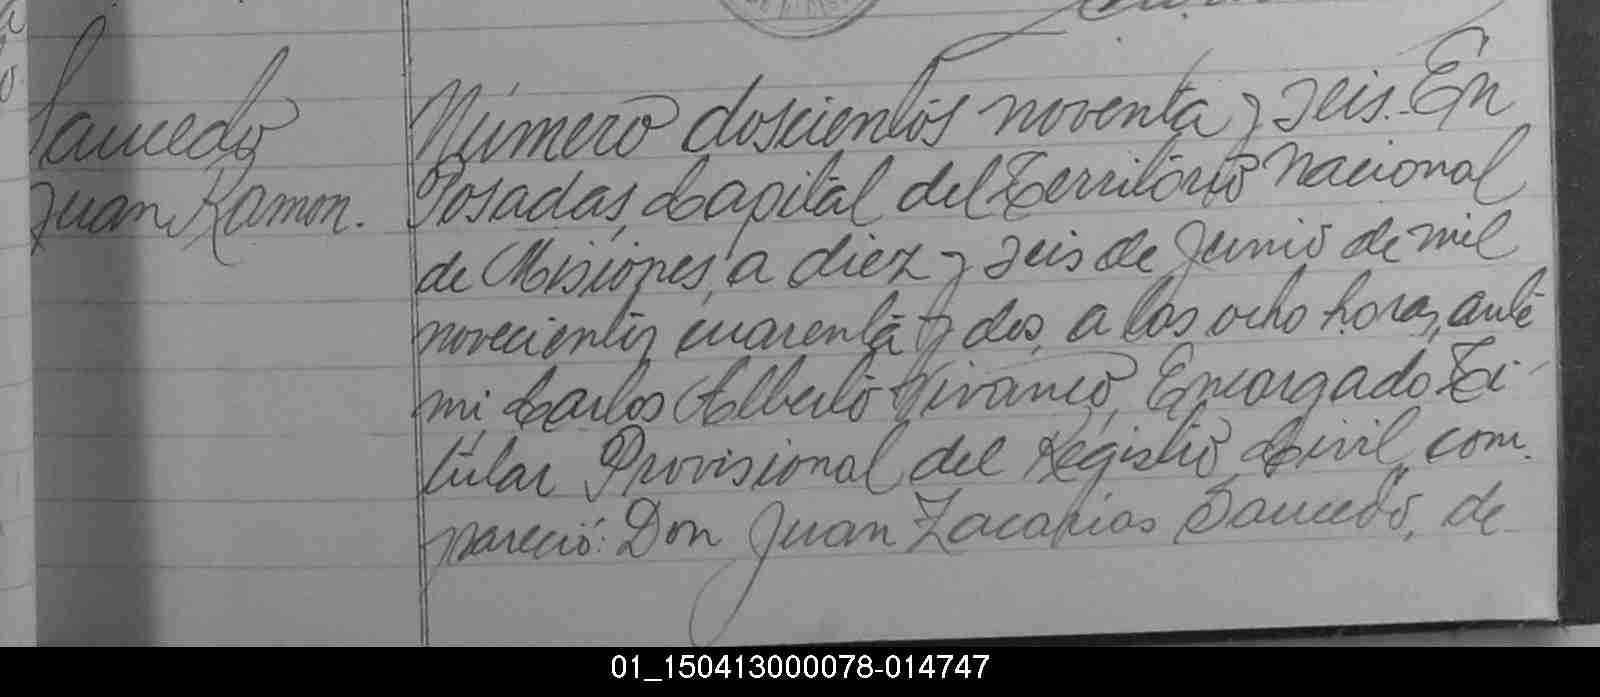 Saucedo
Juan Ramon.
Número doscientos noventa y seis. En
Posadas, Capital del Territorio Nacional
de Misiones, a diez y seis de Junio de mil
novecientos cuarenta y dos, a las ocho horas, ante
mi Carlos Alberto Vivanco, Encargado Ti-
tular Provisional del Registro Civil, com-
pareció: Don Juan Zacarias Saucedo, de
01_150413000078-014747